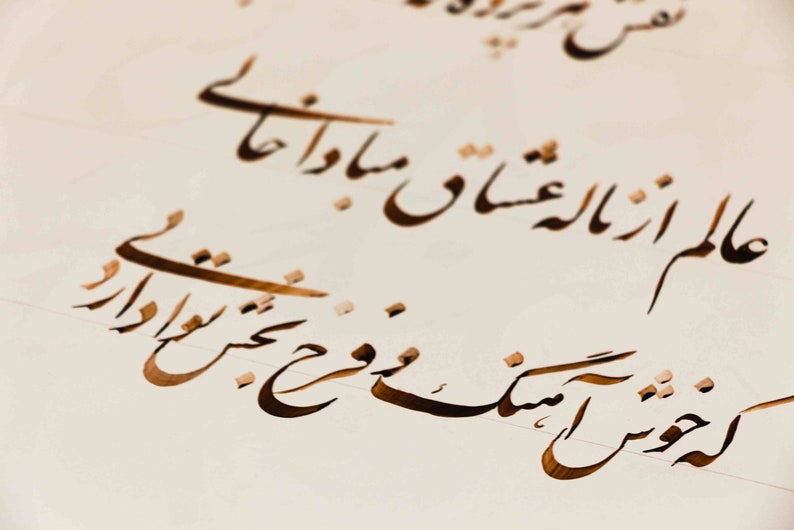 نقش هر پرده
عالم از ناله عشاق مبادا خالی
که خوش آهنگ و فرح بخش نوایی دارد